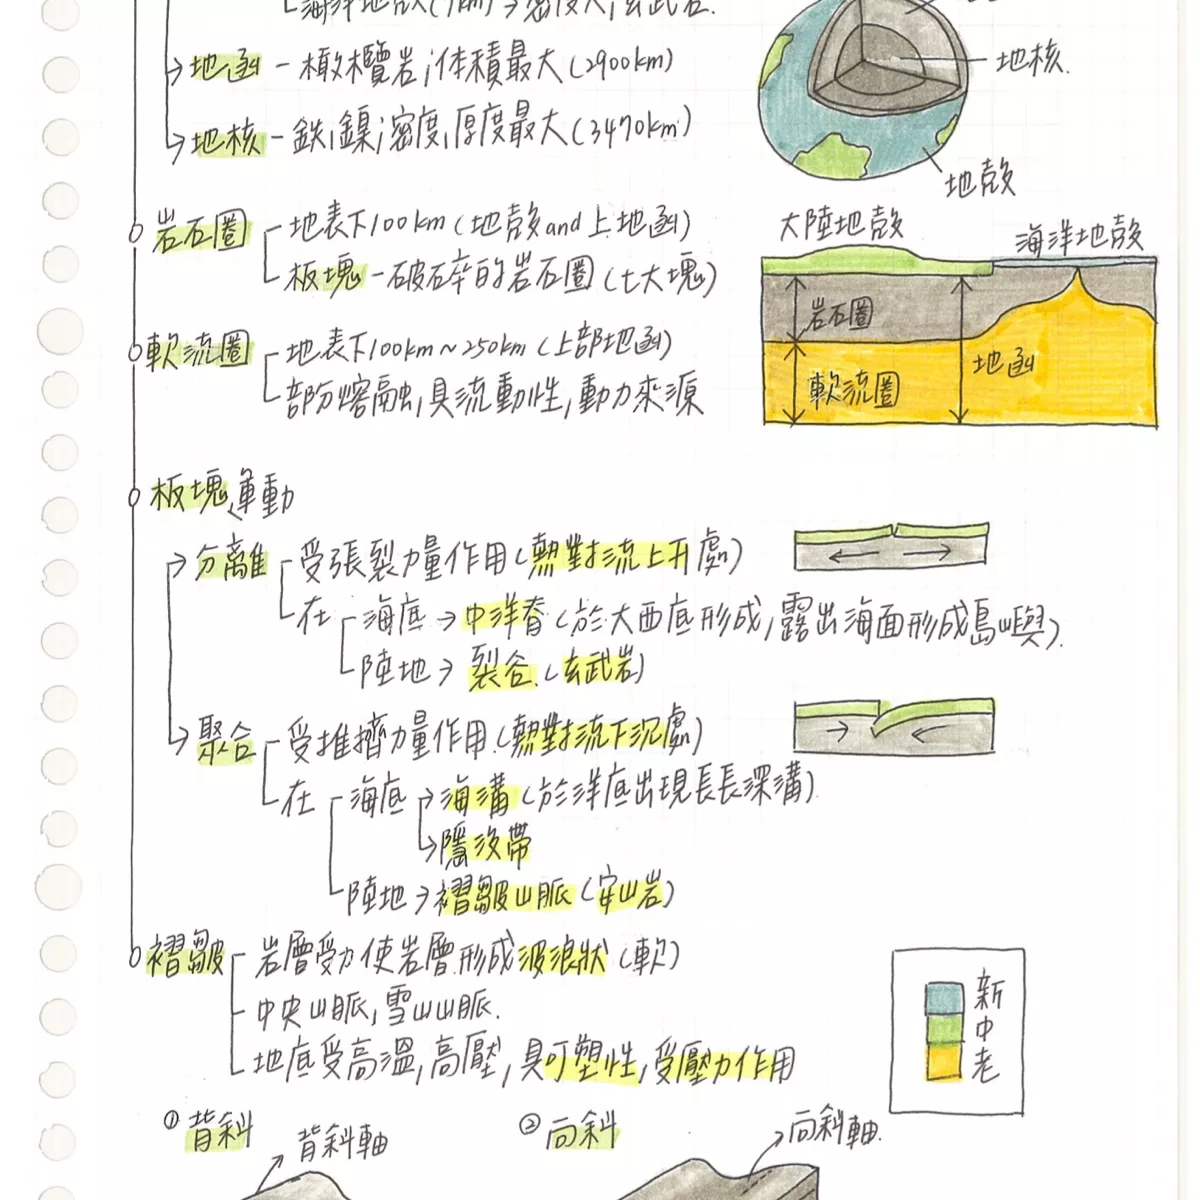 海洋地殼(7km)→密度大,玄武岩.
地函-橄欖岩;体積最大(2900km)
地核
地核-鉄,鎳;密度,厚度最大(3470km)
地殼
岩石圈
地表下100km(地殼and上地函)
板塊-破碎的岩石圈(七大塊)
大陸地殼
海洋地殼
岩石圈
地函
軟流圈
軟流圈
地表下100km~250km(上部地函)
部份熔融,具流動性,動力來源
板塊運動
分離-受張裂力量作用(熱對流上升處)
在
海底→中洋脊(於大西底形成,露出海面形成島嶼).
陸地→裂谷.(玄武岩)
聚合-受推擠力量作用.(熱對流下沉處)
在
海底→海溝(於洋底出現長長深溝).
→隱沒帶
陸地→褶皺山脈(安山岩)
褶皺
岩層受力使岩層形成波浪狀(軟)
中央山脈,雪山山脈.
地底受高溫,高壓,具可塑性,受壓力作用
新
中
老
①背斜
背斜軸
②向斜
向斜軸.